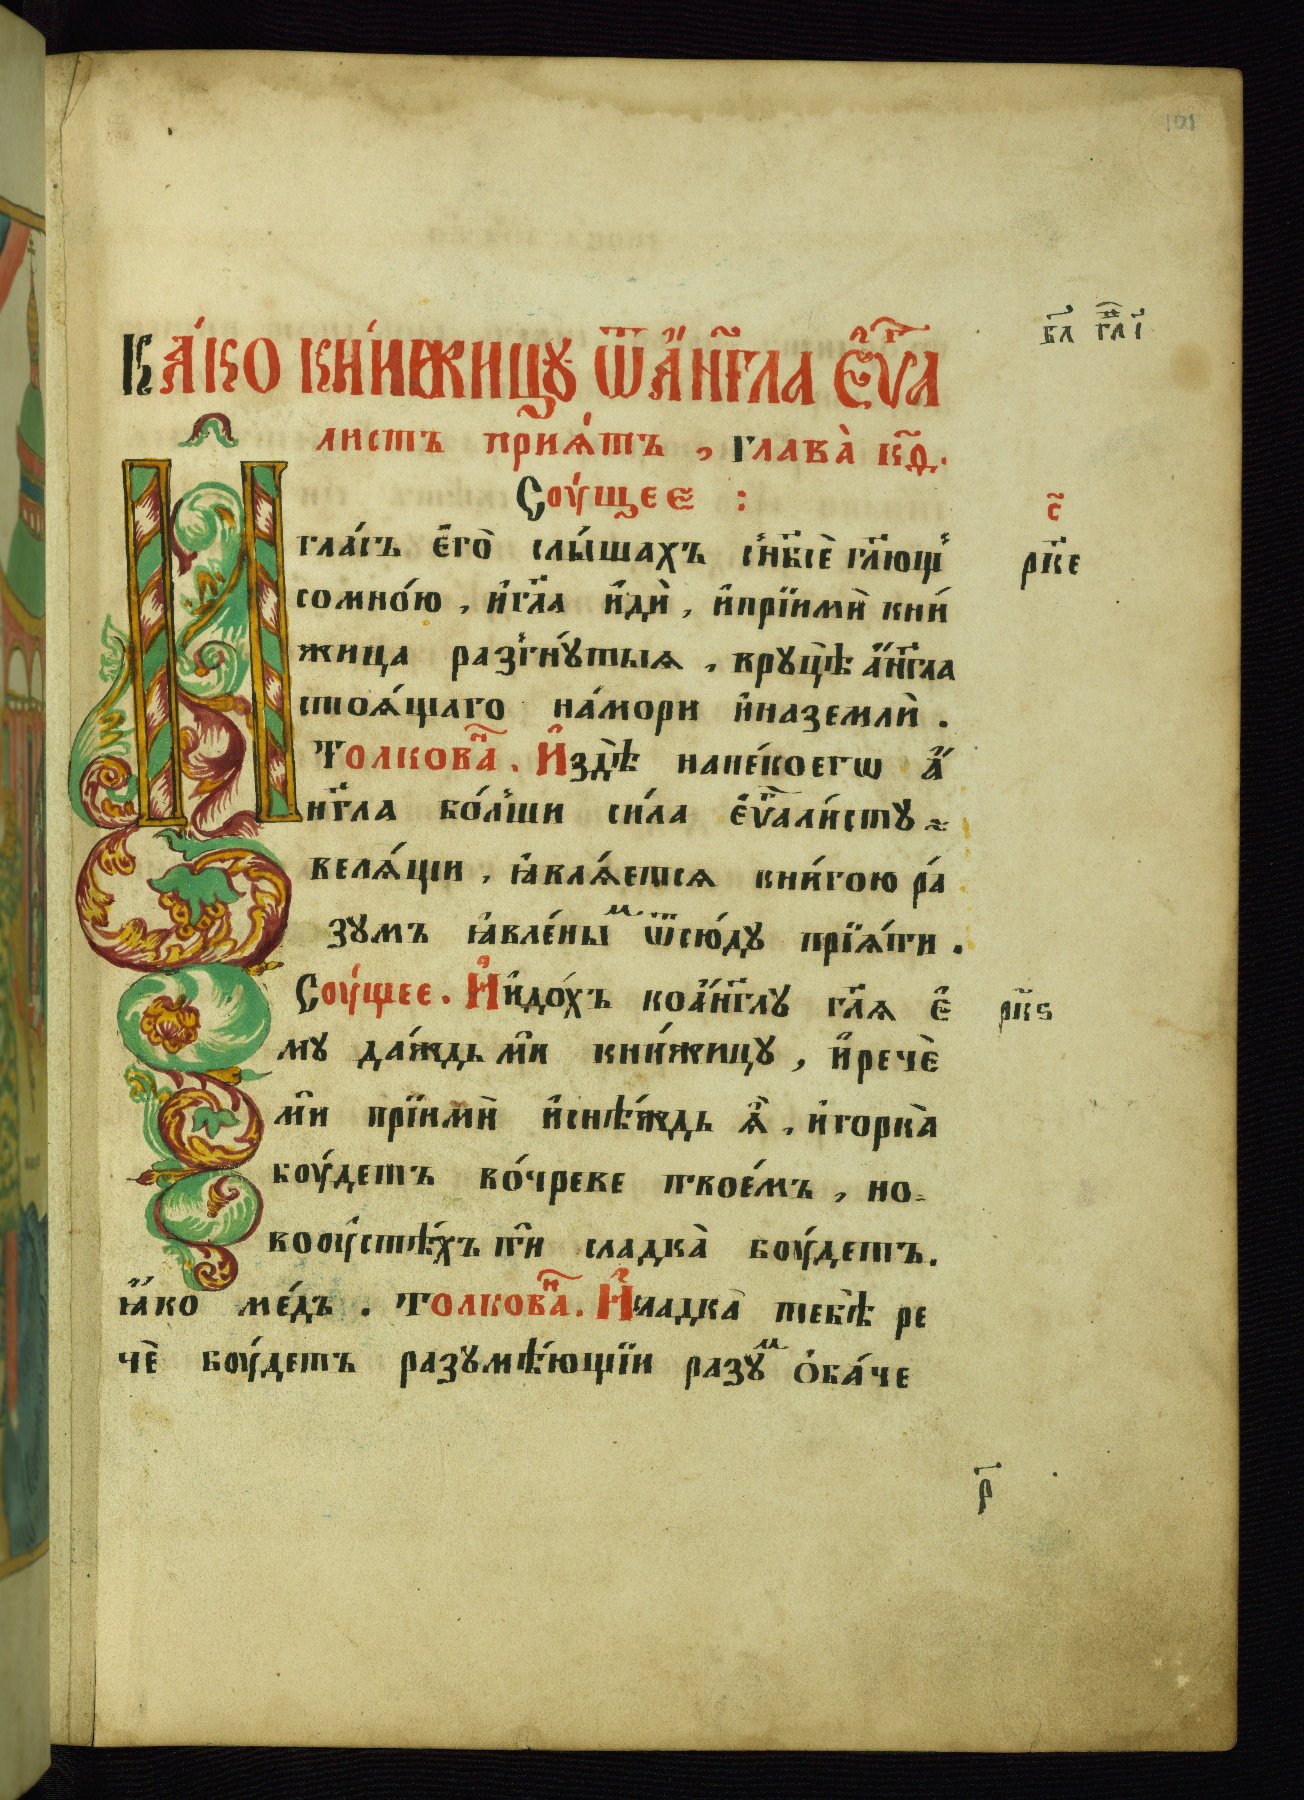 101
ка́ко кни́жицу ѿа҆́нг҃ла є҆ѵⷢ҇а
листъ прия́тъ , глава̀ к҃д.
Соу́щее :
гла́съ є҆го̀ слы́шахъ с̾нб҃сѐ гл҃ющ̾
с҃
рк҃е
сомно́ю , и҆гл҃а и҆дѝ , и҆прїимѝ кни́
жица раз̾гну́тыѧ , вруцѣ̀ а҆́нг҃ла
стоѧ́щаго на́мори и҆наземлѝ .
Толковⷩ҇а . И҆здѣ̀ нане́коегѡ а҆́
нг҃ла бо́л̾ши си́ла є҆ѵⷢ҇али́сту
велѧ́щи , ꙗ҆влѧ́етсѧ кни́гою ра́
зумъ ꙗ҆вле́ныⷨ ѿсю́ду прїѧ́ти .
Соу́щее . И҆и҆до́хъ коа҆́нг҃лу гл҃ѧ є҆
рк҃ѕ
му да́ждь мѝ кни́жицу , и҆речѐ
мѝ прїимѝ и҆снѣ́ждь ѧ҆̀ , и҆горка̀
боу́детъ во́чреве твое́мъ , но
вооу҆стѣ́хъ тѝ сладка̀ боу́детъ .
ꙗ҆́ко ме́дъ . Толковⷩ҇а . И҆сладка̀ тебѣ̀ ре
чѐ боу́детъ разумѣ́ющїи разуⷨ ѻ҆ба́че
р҃